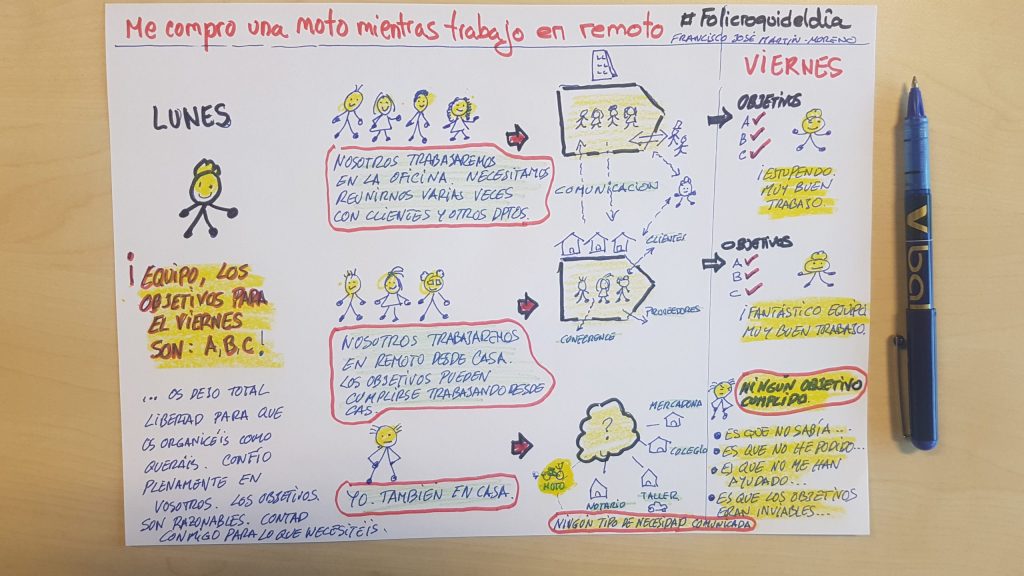 Me compro una moto mientras trabajo en remoto
#Folicroquideldía
FRANCISCO JOSÉ MARTÍN-MORENO
LUNES
¡EQUIPO, LOS
OBJETIVOS PARA
EL VIERNES
SON: A, B, C!
... OS DEJO TOTAL
LIBERTAD PARA QUE
OS ORGANICÉIS COMO
QUERÁIS. CONFÍO
PLENAMENTE EN
VOSOTROS. LOS OBJETIVOS
SON RAZONABLES. CONTAD
CONMIGO PARA LO QUE NECESITÉIS.
NOSOTROS TRABAJAREMOS
EN LA OFICINA. NECESITAMOS
REUNIRNOS VARIAS VECES
CON CLIENTES Y OTROS DPTOS.
COMUNICACION
CLIENTES
NOSOTROS TRABAJAREMOS
EN REMOTO DESDE CASA.
LOS OBJETIVOS PUEDEN
CUMPLIRSE TRABAJANDO DESDE
CAS.
PROVEEDORES
CONFERENCE
YO. TAMBIÉN EN CASA.
?
MERCADONA
COLEGIO
TALLER
NOTARIO
MOTO
NINGÚN TIPO DE NECESIDAD COMUNICADA
VIERNES
OBJETIVOS
A
B
C
¡ESTUPENDO.
MUY BUEN
TRABAJO.
OBJETIVOS
A
B
C
¡FANTÁSTICO EQUIPO.
MUY BUEN TRABAJO.
NINGÚN OBJETIVO
CUMPLIDO.
• ES QUE NO SABÍA...
• ES QUE NO HE PODIDO...
• ES QUE NO ME HAN
AYUDADO...
• ES QUE LOS OBJETIVOS
ERAN INVIABLES...
V bal